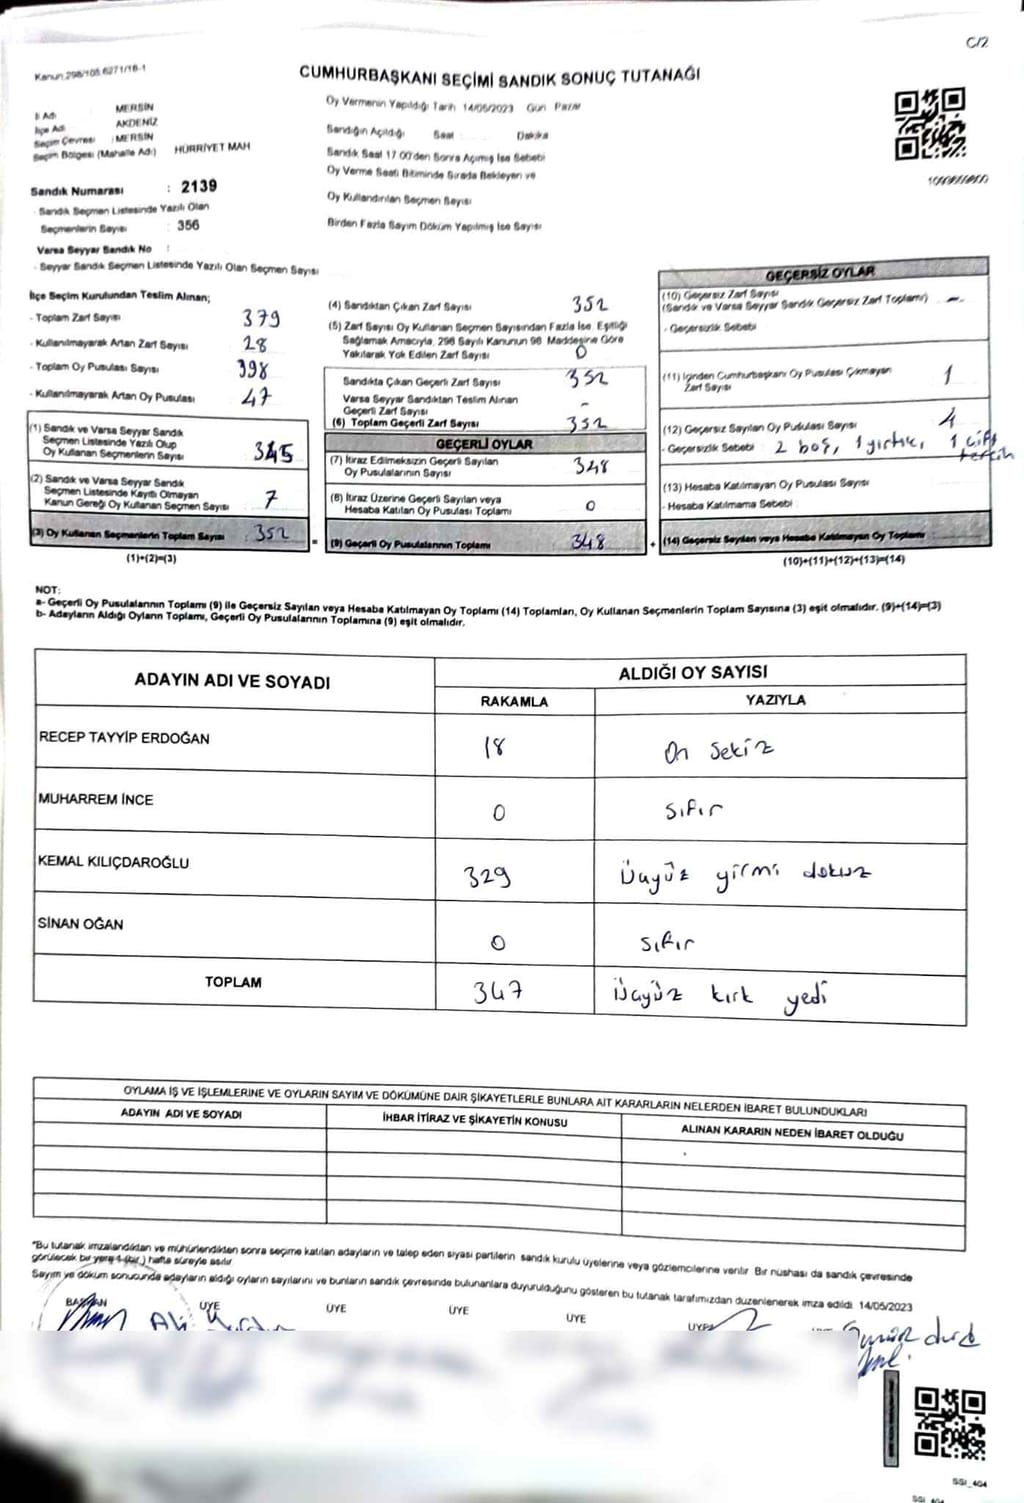 C/2
Kanun.298/105.6271/18-1
CUMHURBAŞKANI SEÇİMİ SANDIK SONUÇ TUTANAĞI
İl Adı MERSİN
İlçe Adı AKDENİZ
Seçim Çevresi : MERSİN
Seçim Bölgesi (Mahalle Adı) HÜRRİYET MAH
Sandık Numarası : 2139
- Sandık Seçmen Listesinde Yazılı Olan
Seçmenlerin Sayısı : 356
Varsa Seyyar Sandık No :
- Seyyar Sandık Seçmen Listesinde Yazılı Olan Seçmen Sayısı
Oy Vermenin Yapıldığı Tarih 14/05/2023 Gün Pazar
Sandığın Açıldığı Saat Dakika
Sandık Saat 17.00'den Sonra Açılmış İse Sebebi
Oy Verme Saati Bitiminde Sırada Bekleyen ve
Oy Kullandırılan Seçmen Sayısı
Birden Fazla Sayım Döküm Yapılmış İse Sayısı
İlçe Seçim Kurulundan Teslim Alınan;
- Toplam Zarf Sayısı 379
- Kullanılmayarak Artan Zarf Sayısı 28
- Toplam Oy Pusulası Sayısı 398
- Kullanılmayarak Artan Oy Pusulası 47
(1) Sandık ve Varsa Seyyar Sandık
Seçmen Listesinde Yazılı Olup
Oy Kullanan Seçmenlerin Sayısı 345
(2) Sandık ve Varsa Seyyar Sandık
Seçmen Listesinde Kayıtlı Olmayan
Kanun Gereği Oy Kullanan Seçmen Sayısı 7
(3) Oy Kullanan Seçmenlerin Toplam Sayısı 352
(1)+(2)=(3)
(4) Sandıktan Çıkan Zarf Sayısı 352
(5) Zarf Sayısı Oy Kullanan Seçmen Sayısından Fazla İse, Eşitliği
Sağlamak Amacıyla, 298 Sayılı Kanunun 98 Maddesine Göre
Yakılarak Yok Edilen Zarf Sayısı 0
Sandıkta Çıkan Geçerli Zarf Sayısı 352
Varsa Seyyar Sandıktan Teslim Alınan
Geçerli Zarf Sayısı -
(6) Toplam Geçerli Zarf Sayısı 352
GEÇERLİ OYLAR
(7) İtiraz Edilmeksizin Geçerli Sayılan
Oy Pusulalarının Sayısı 348
(8) İtiraz Üzerine Geçerli Sayılan veya
Hesaba Katılan Oy Pusulası Toplamı 0
= (9) Geçerli Oy Pusulalarının Toplamı 348
GEÇERSİZ OYLAR
(10) Geçersiz Zarf Sayısı
(Sandık ve Varsa Seyyar Sandık Geçersiz Zarf Toplamı) -
- Geçersizlik Sebebi
(11) İçinden Cumhurbaşkanı Oy Pusulası Çıkmayan
Zarf Sayısı 1
(12) Geçersiz Sayılan Oy Pusulası Sayısı 4
- Geçersizlik Sebebi 2 boş, 1 yırtık, 1 çift
tercih
(13) Hesaba Katılmayan Oy Pusulası Sayısı
- Hesaba Katılmama Sebebi
+ (14) Geçersiz Sayılan veya Hesaba Katılmayan Oy Toplamı
(10)+(11)+(12)+(13)=(14)
NOT:
a- Geçerli Oy Pusulalarının Toplamı (9) ile Geçersiz Sayılan veya Hesaba Katılmayan Oy Toplamı (14) Toplamları, Oy Kullanan Seçmenlerin Toplam Sayısına (3) eşit olmalıdır. (9)+(14)=(3)
b- Adayların Aldığı Oyların Toplamı, Geçerli Oy Pusulalarının Toplamına (9) eşit olmalıdır.
ADAYIN ADI VE SOYADI ALDIĞI OY SAYISI
RAKAMLA YAZIYLA
RECEP TAYYİP ERDOĞAN 18 On sekiz
MUHARREM İNCE 0 sıfır
KEMAL KILIÇDAROĞLU 329 Üçyüz yirmi dokuz
SİNAN OĞAN 0 sıfır
TOPLAM 347 Üçyüz kırk yedi
OYLAMA İŞ VE İŞLEMLERİNE VE OYLARIN SAYIM VE DÖKÜMÜNE DAİR ŞİKAYETLERLE BUNLARA AİT KARARLARIN NELERDEN İBARET BULUNDUKLARI
ADAYIN ADI VE SOYADI İHBAR İTİRAZ VE ŞİKAYETİN KONUSU ALINAN KARARIN NEDEN İBARET OLDUĞU
*Bu tutanak imzalandıktan ve mühürlendikten sonra seçime katılan adayların ve talep eden siyasi partilerin sandık kurulu üyelerine veya gözlemcilerine verilir. Bir nüshası da sandık çevresinde
görülecek bir yere 1 (bir) hafta süreyle asılır.
Sayım ve döküm sonucunda adayların aldığı oyların sayılarını ve bunların sandık çevresinde bulunanlara duyurulduğunu gösteren bu tutanak tarafımızdan düzenlenerek imza edildi. 14/05/2023
BAŞKAN ÜYE ÜYE ÜYE ÜYE ÜYE
Ali
SGI_404
SGI_404